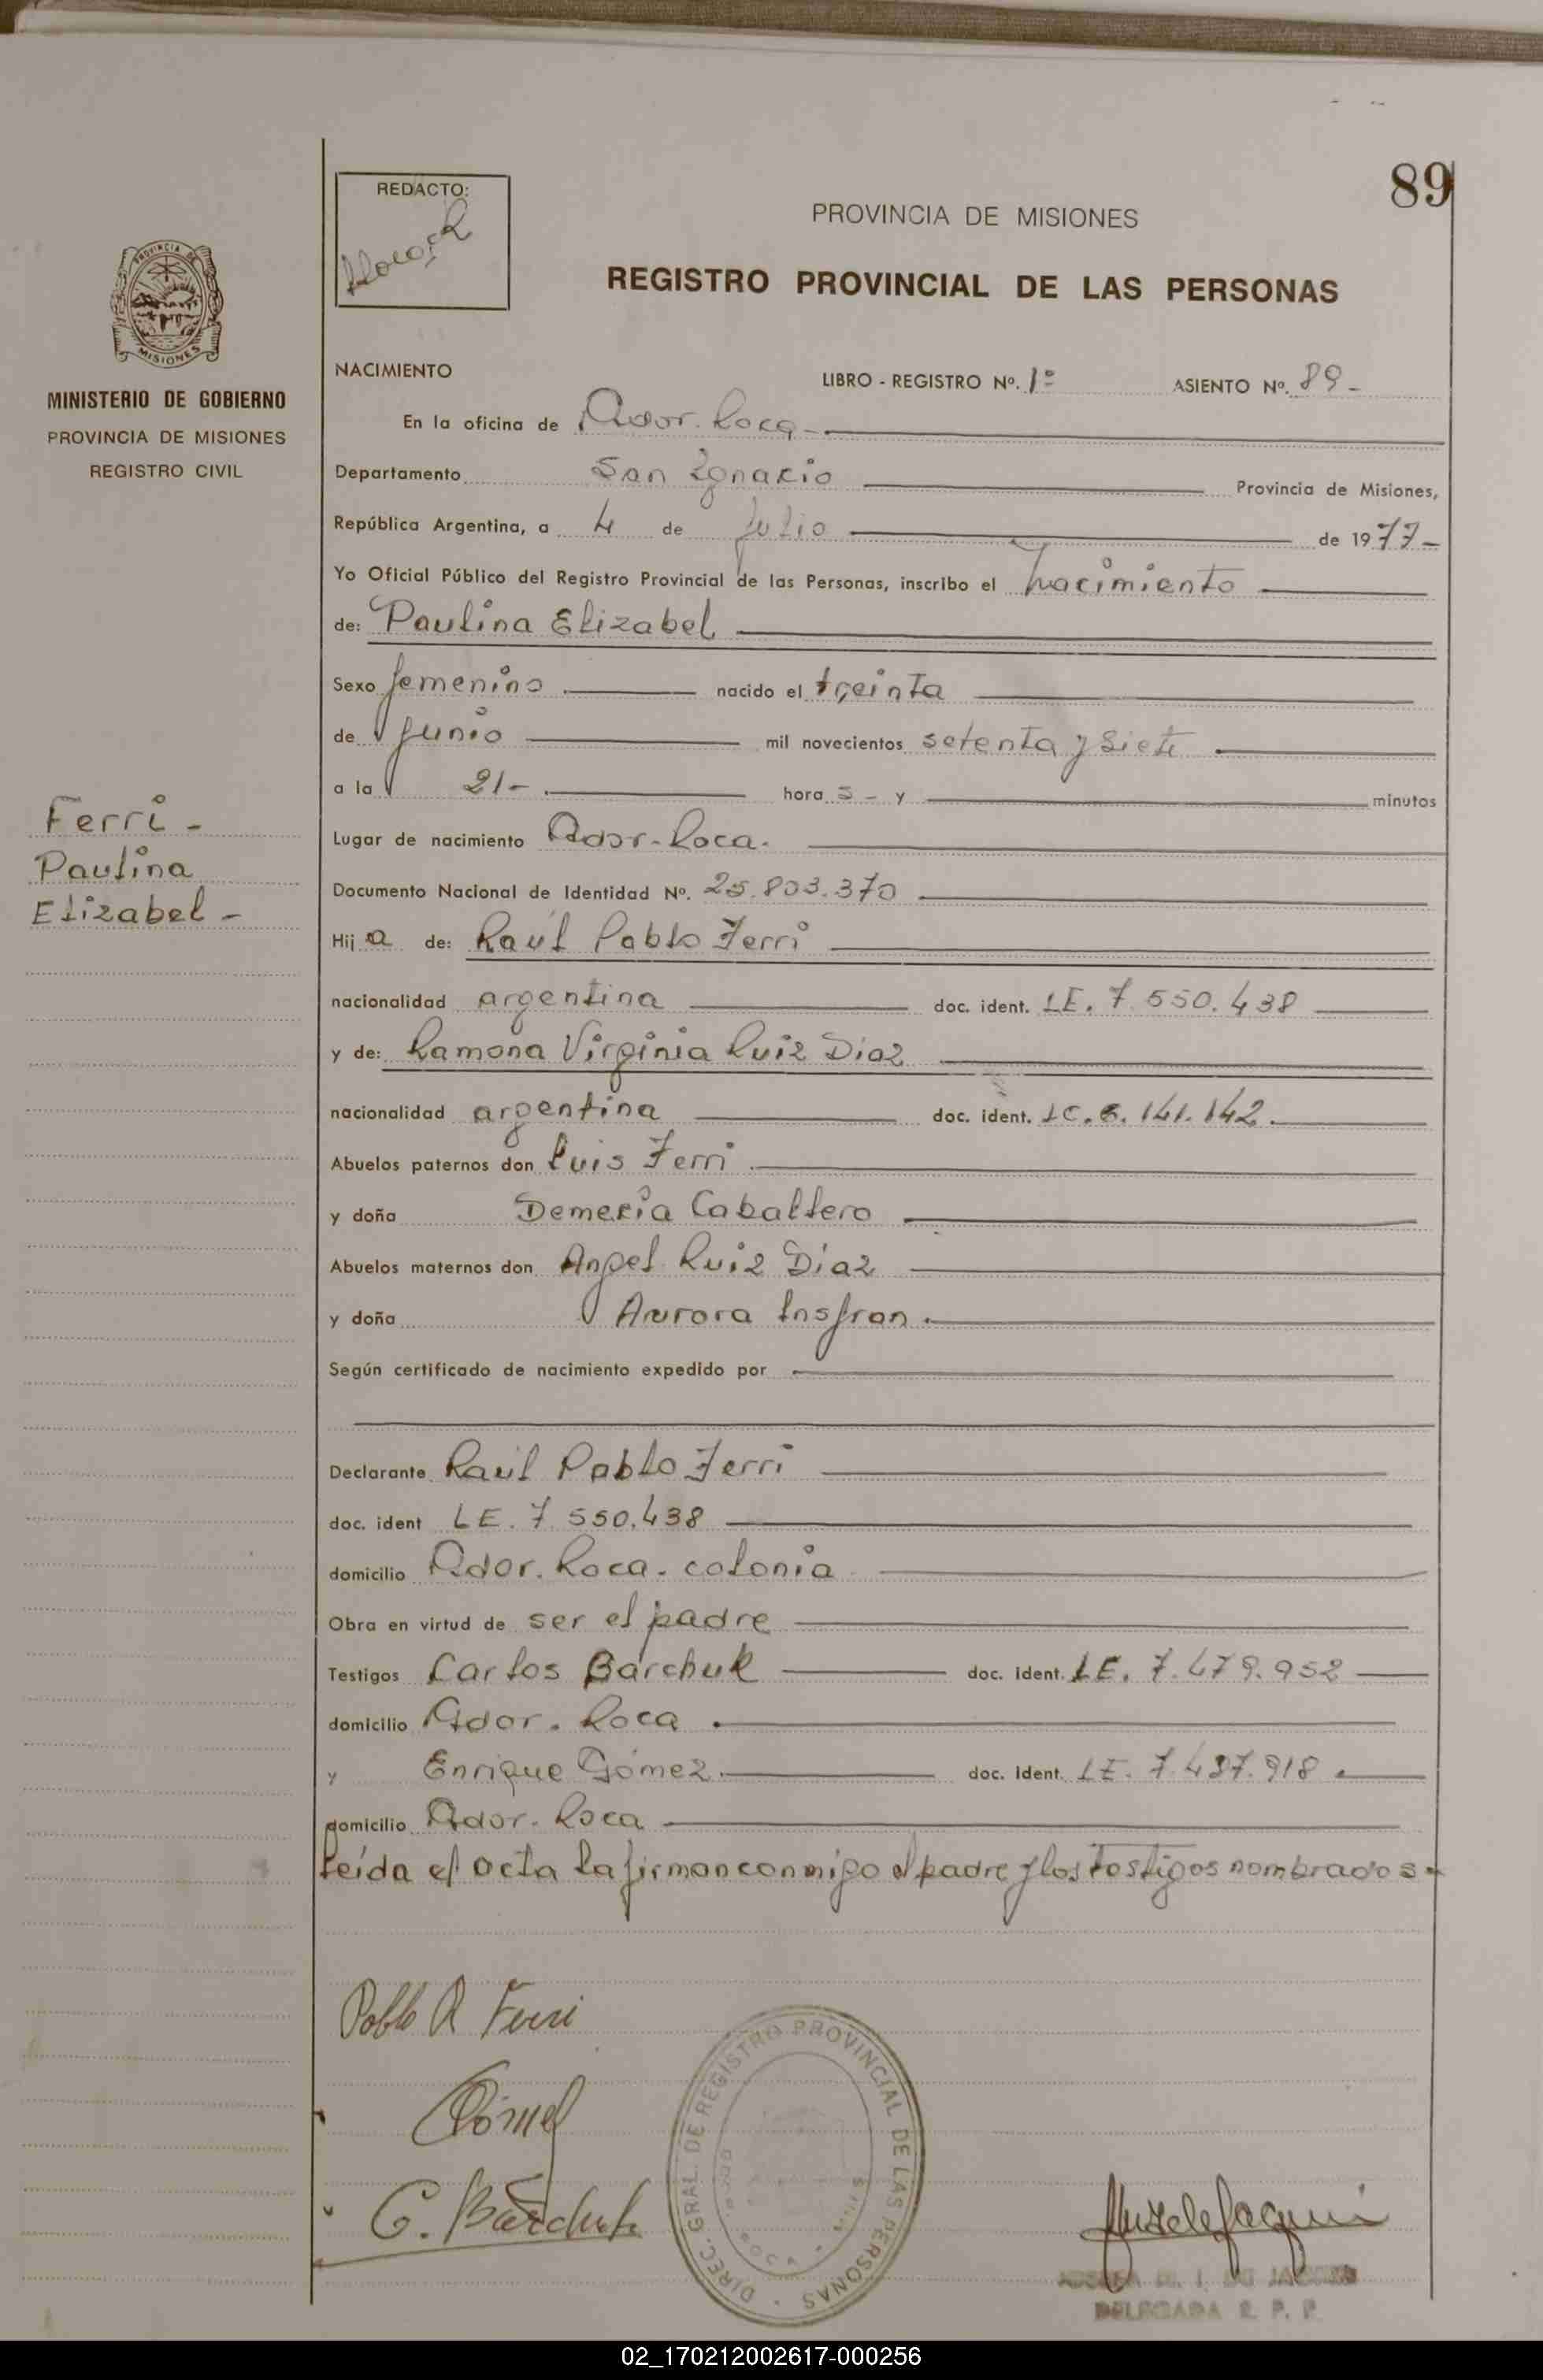 89
REDACTO:
PROVINCIA DE MISIONES
REGISTRO PROVINCIAL DE LAS PERSONAS
PROVINCIA DE
MISIONES
MINISTERIO DE GOBIERNO
PROVINCIA DE MISIONES
REGISTRO CIVIL
NACIMIENTO
LIBRO - REGISTRO Nº. 1º ASIENTO Nº. 89-
En la oficina de Gdor. Roca-
Departamento San Ignacio Provincia de Misiones,
República Argentina, a 4 de Julio de 1977-
Yo Oficial Público del Registro Provincial de las Personas, inscribo el nacimiento
de: Paulina Elizabel
Sexo femenino nacido el treinta
de junio mil novecientos setenta y siete
a la 21- hora s - y minutos
Ferri -
Paulina
Elizabel -
Lugar de nacimiento Gdor. Roca.
Documento Nacional de Identidad Nº. 25.803.370
Hij a de: Raúl Pablo Ferri
nacionalidad argentina doc. ident. LE. 7.550.438
y de: Ramona Virginia Ruiz Diaz
nacionalidad argentina doc. ident. LC. 6.141.142.
Abuelos paternos don Luis Ferri
y doña Demecia Caballero
Abuelos maternos don Angel Ruiz Díaz
y doña Aurora Insfran.
Según certificado de nacimiento expedido por
Declarante Raúl Pablo Ferri
doc. ident LE. 7.550.438
domicilio Gdor. Roca. colonia
Obra en virtud de ser el padre
Testigos Carlos Barchuk doc. ident. LE. 7.479.952
domicilio Gdor. Roca.
y Enrique Gómez. doc. ident. LE. 7.487.918.
domicilio Gdor. Roca
Leída el acta la firman conmigo el padre y los testigos nombrados-
Pablo R Ferri
Gómez
C. Barchuk
DIREC. GRAL. DE REGISTRO PROVINCIAL DE LAS PERSONAS
ROCA
DELEGADA R. P. P.
02_170212002617-000256